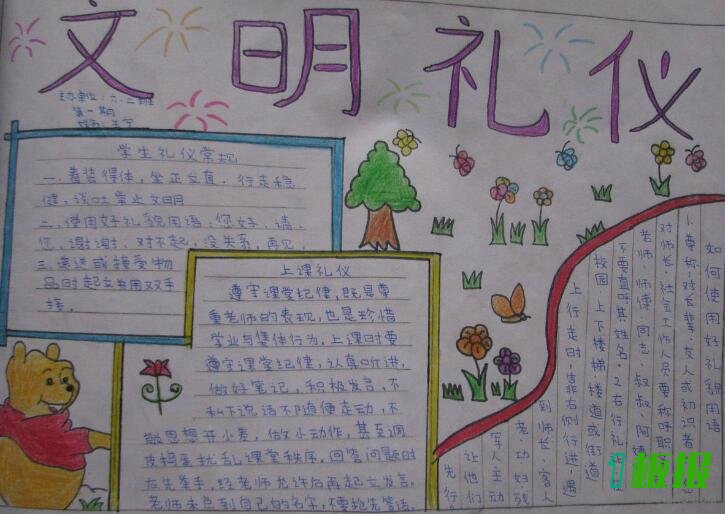 文明礼仪
主办单位:六.二班
第一期
学生礼仪常规
一.着装得体,坐正立直.行走稳
健,谈吐举止文明
二.使用好礼貌用语,您好.请.
您.谢谢.对不起,没关系,再见.
三.递送或接受物
品时起立并用双手
接.
上课礼仪
遵守课堂纪律,既是尊
重老师的表现,也是珍惜
学业与集体行为,上课时要
遵守课堂纪律,认真听讲,
做好笔记,积极发言,不
私下说话不随便走动,不
做小动作,甚至调
皮捣蛋扰乱课堂秩序,回答问题时
应先举手,经老师允许后再起立发言.
老师未点到自己的名字,不要抢先答话.
如何使用好礼貌用语
1.尊称:对长辈.友人或初识者
对师长.社会工作人员要称呼职
老师.师傅.同志.叔叔.阿姨
不要直呼其姓名.2右行礼
校园.上下楼梯.楼道或街道
上行走时,靠右侧行进,遇
到师长.客人
老.幼.妇.残
军人主动
让他们
先行。
板报